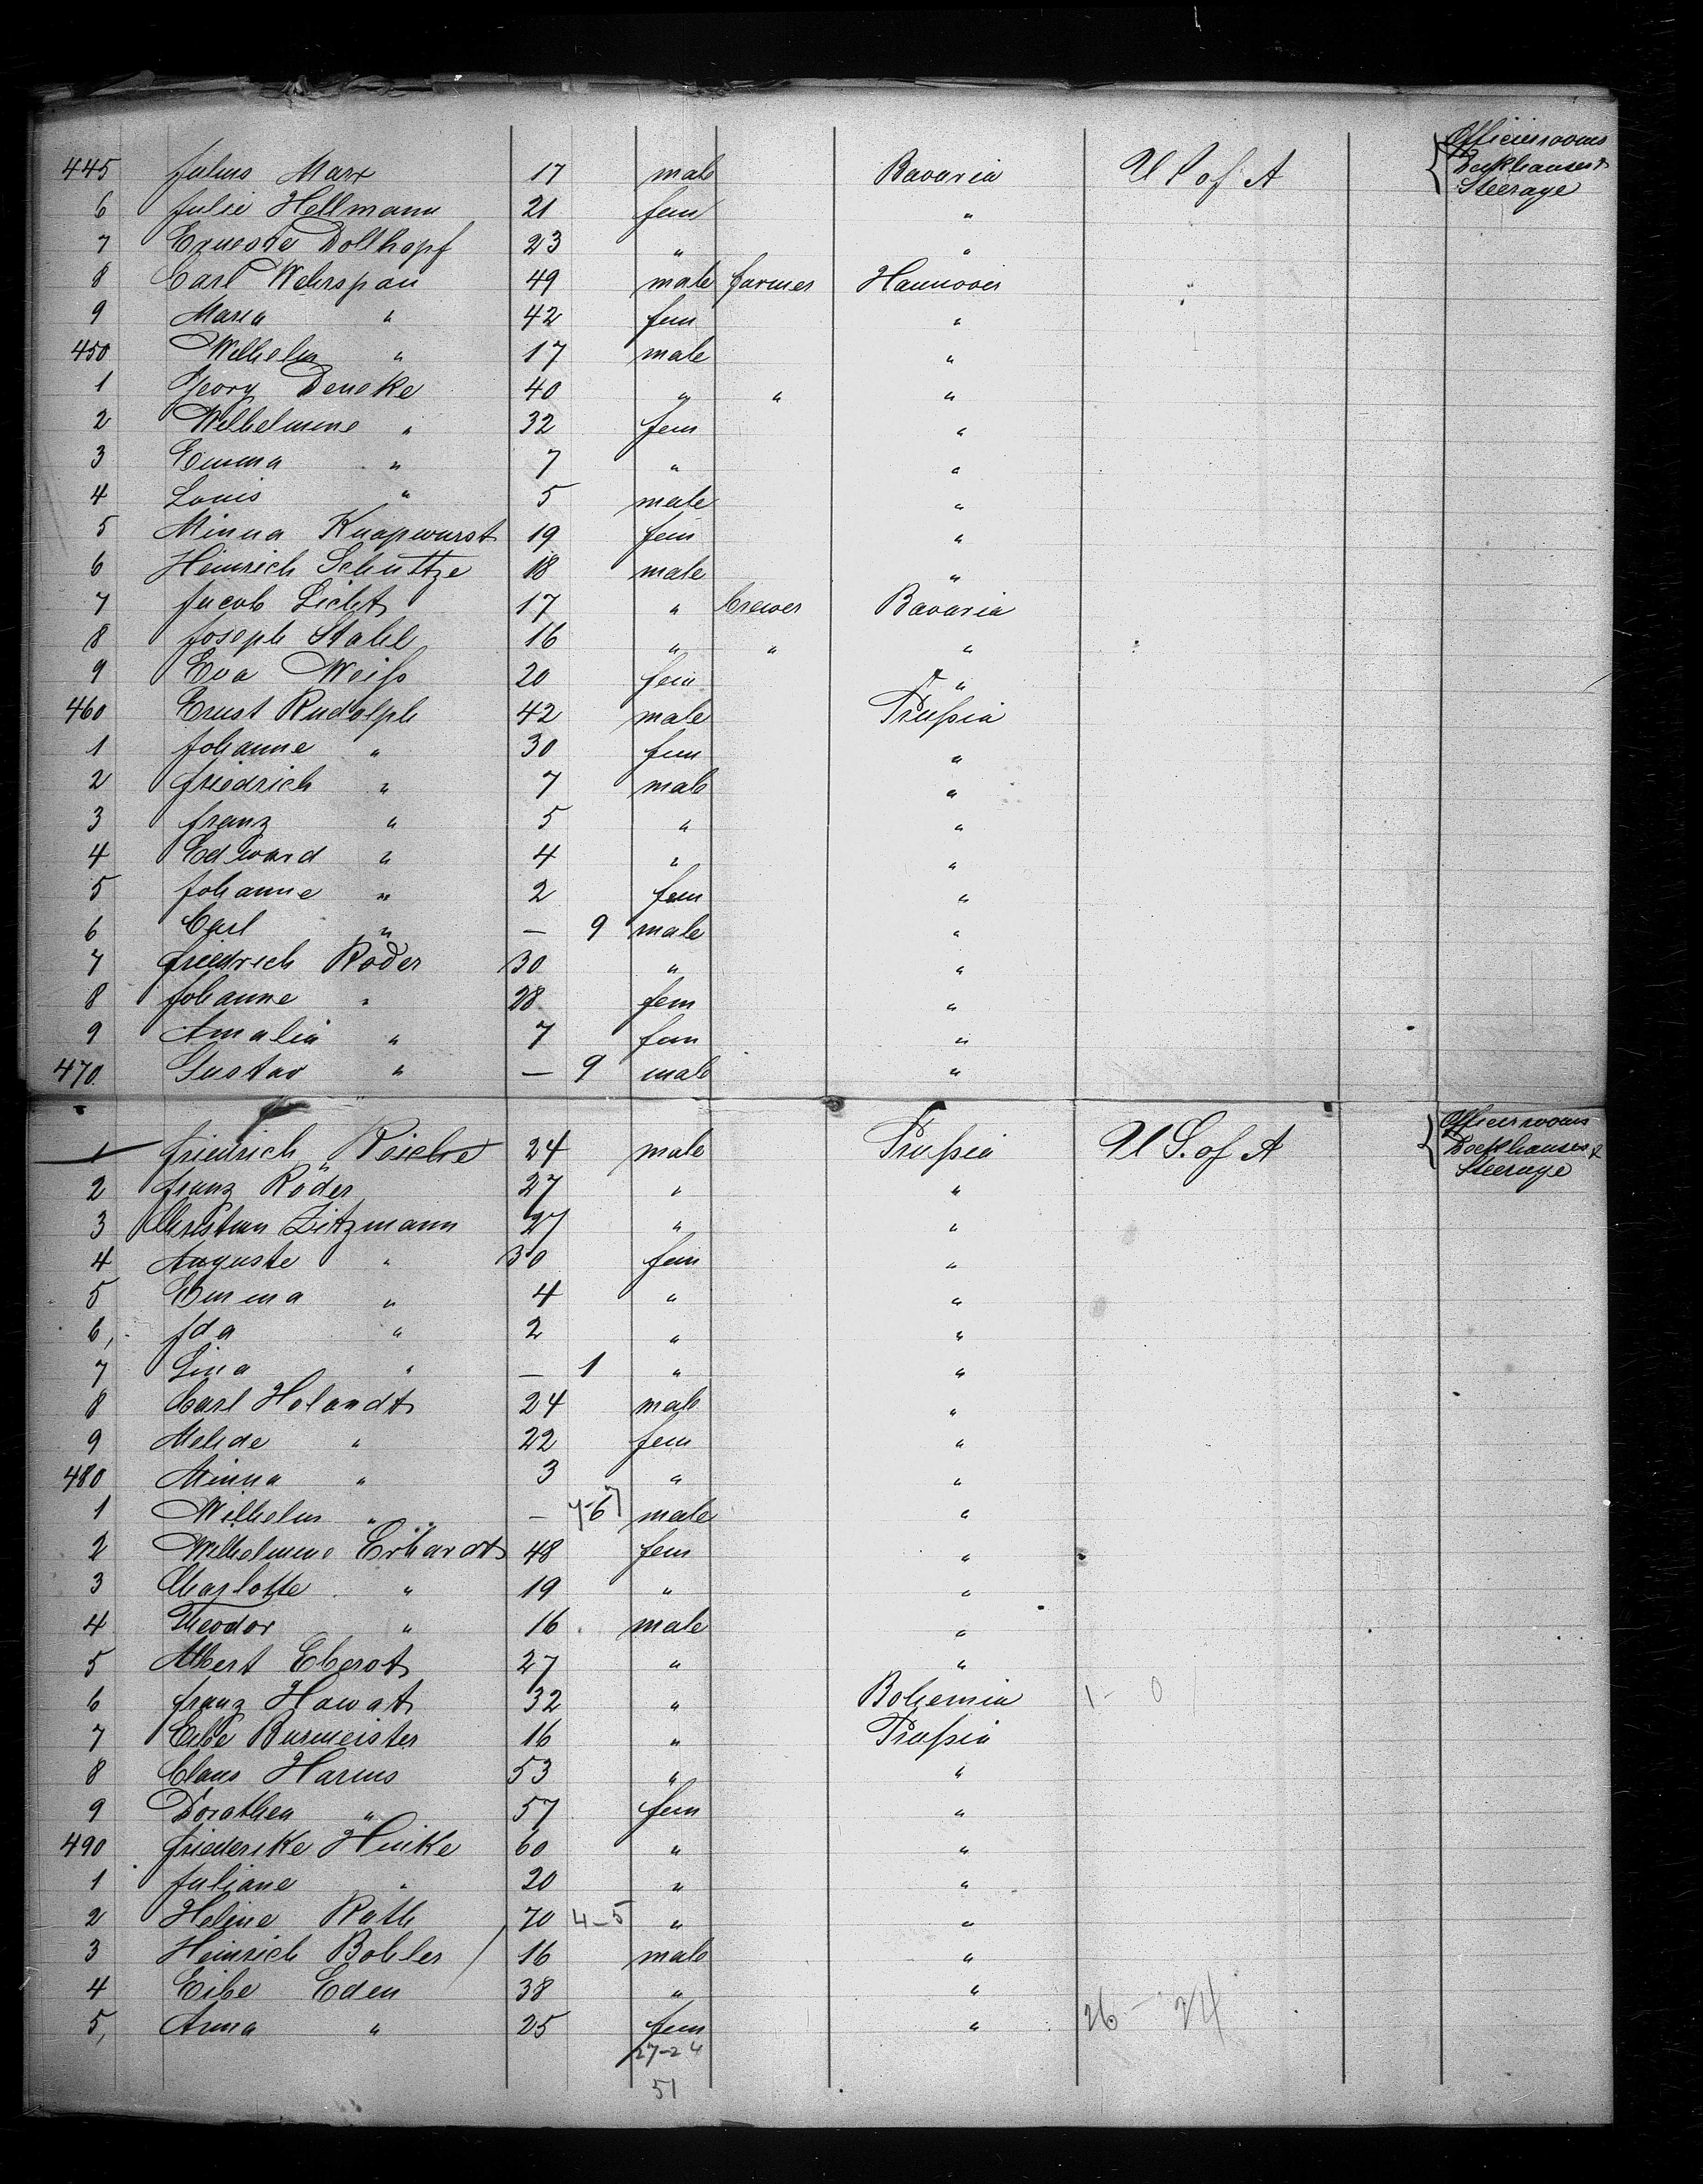 Officiersrooms
445 Julius Marx 17 male Bavaria U S of A Deckhauses &
Steerage
6 Julie Hellmann 21 fem "
7 Erneste Dollhopf 23 " "
8 Carl Wehrspan 49 male farmer Hannover
9 Maria " 42 fem "
450 Wilhelm " 17 male "
1 Georg Deneke 40 " " "
2 Wilhelmine " 32 fem "
3 Emma " 7 " "
4 Louis " 5 male "
5 Minna Knapwurst 19 fem "
6 Heinrich Schuttze 18 male "
7 Jacob Licht 17 " brewer Bavaria
8 Joseph Stahl 16 " " "
9 Eva Weiſs 20 fem "
460 Ernst Rudolph 42 male Pruſsia
1 Johanne " 30 fem "
2 Friedrich " 7 male "
3 Franz " 5 " "
4 Edward " 4 " "
5 Johanne " 2 fem "
6 Carl " — 9 male "
7 Friedrich Röder 30 " "
8 Johanne " 28 fem "
9 Amalia " 7 fem "
470 Gustav " — 9 male "
Officiersrooms
1 Friedrich Reiche 24 male Pruſsia U S. of A Deckhauses &
Steerage
2 Franz Röder 27 " "
3 Christian Zitzmann 27 " "
4 Auguste " 30 fem "
5 Emma " 4 " "
6, Ida " 2 " "
7 Lina " — 1 " "
8 Carl Holandt 24 male "
9 " 22 fem "
480 Minna " 3 " "
1 Wilhelm " — male "
2 Wilhelmine Erhardt 48 fem "
3 Charlotte " 19 " "
4 Theodor " 16 male "
5 Albert Eberot 27 " "
6 Franz Hawat 32 " Bohemia 1 - 0
7 Eibe Burmeister 16 " Pruſsia
8 Claus Harms 53 " "
9 Dorathea " 57 fem "
490 Friederike Hinke 60 " "
1 Juliane " 20 " "
2 Heline Rath 70 4-5 " "
3 Heinrich Bohler 16 male "
4 Eibe Eden 38 " "
5, Anna " 25 fem " 26 - 24
27-24
51